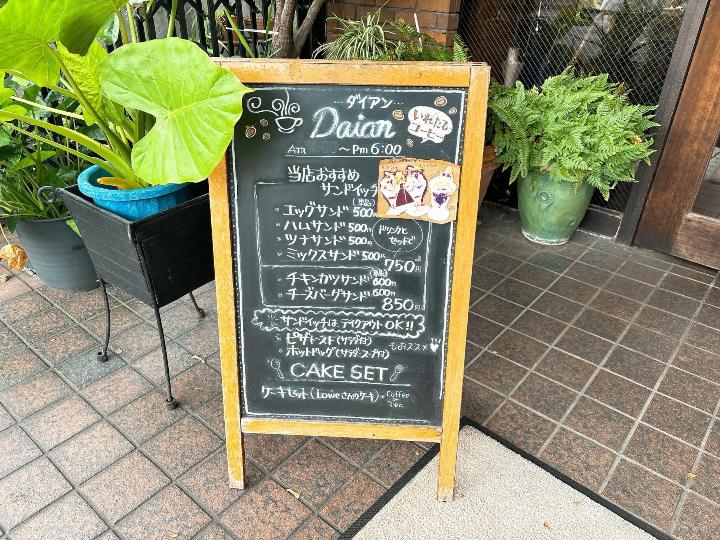 ダイアン
Daian
いれたて
コーヒー
Am ~ Pm 6:00
当店おすすめ
サンドイッチ
(単品)
・エッグサンド 500円
・ハムサンド 500円
・ツナサンド 500円
・ミックスサンド 500円
ドリンクと
セットで
750円
(単品)
・チキンカツサンド 600円
・チーズバーグサンド 600円
850円
サンドイッチは、テイクアウトOK!!
・ピザトースト(サラダ付)
・ホットドッグ(サラダ・スープ付)
もおススメ
CAKE SET
ケーキセット(Loweさんのケーキ)+
Coffee
or
Tea